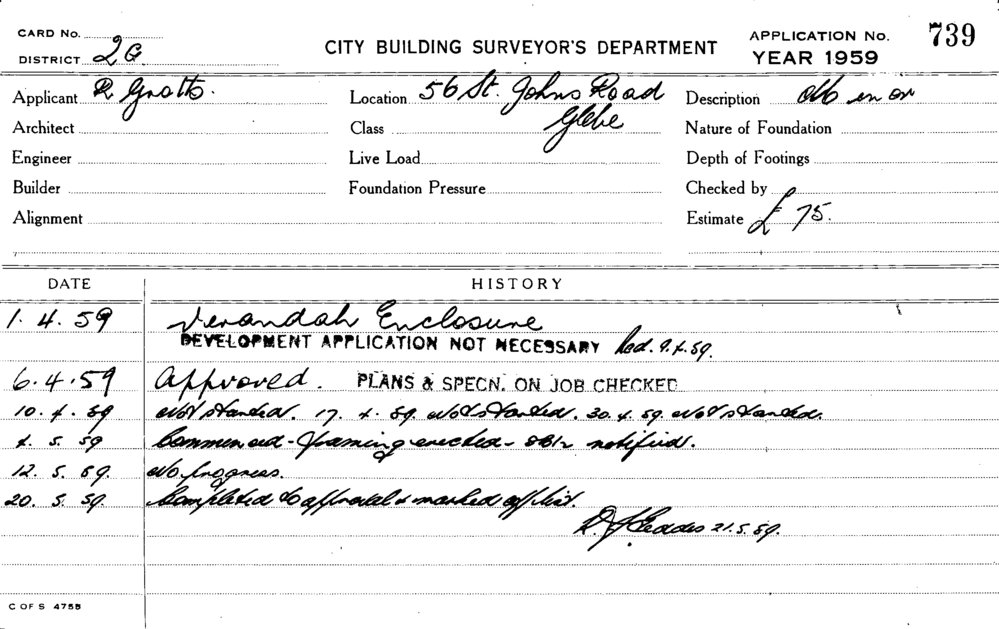 CARD No.
DISTRICT 2G
CITY BUILDING SURVEYOR'S DEPARTMENT
APPLICATION No. 739
YEAR 1959
Applicant R
Location 56 St. Johns Road
Glebe
Description
Architect
Class
Nature of Foundation
Engineer
Live Load
Depth of Footings
Builder
Foundation Pressure
Checked by
Alignment
Estimate £ 75.
DATE HISTORY
1. 4. 59 Verandah Enclosure
DEVELOPMENT APPLICATION NOT NECESSARY Rcd. 9.4.59.
6.4.59 Approved. PLANS & SPECN. ON JOB CHECKED
10. 4. 59 Not started. 17. 4. 59. Not started. 30. 4. 59. Not started.
4. 5. 59 Commenced - framing erected - notified.
12. 5. 59. No progress.
20. 5. 59. Completed to approval & marked off list.
Geddes 21.5.59.
C OF S 4755